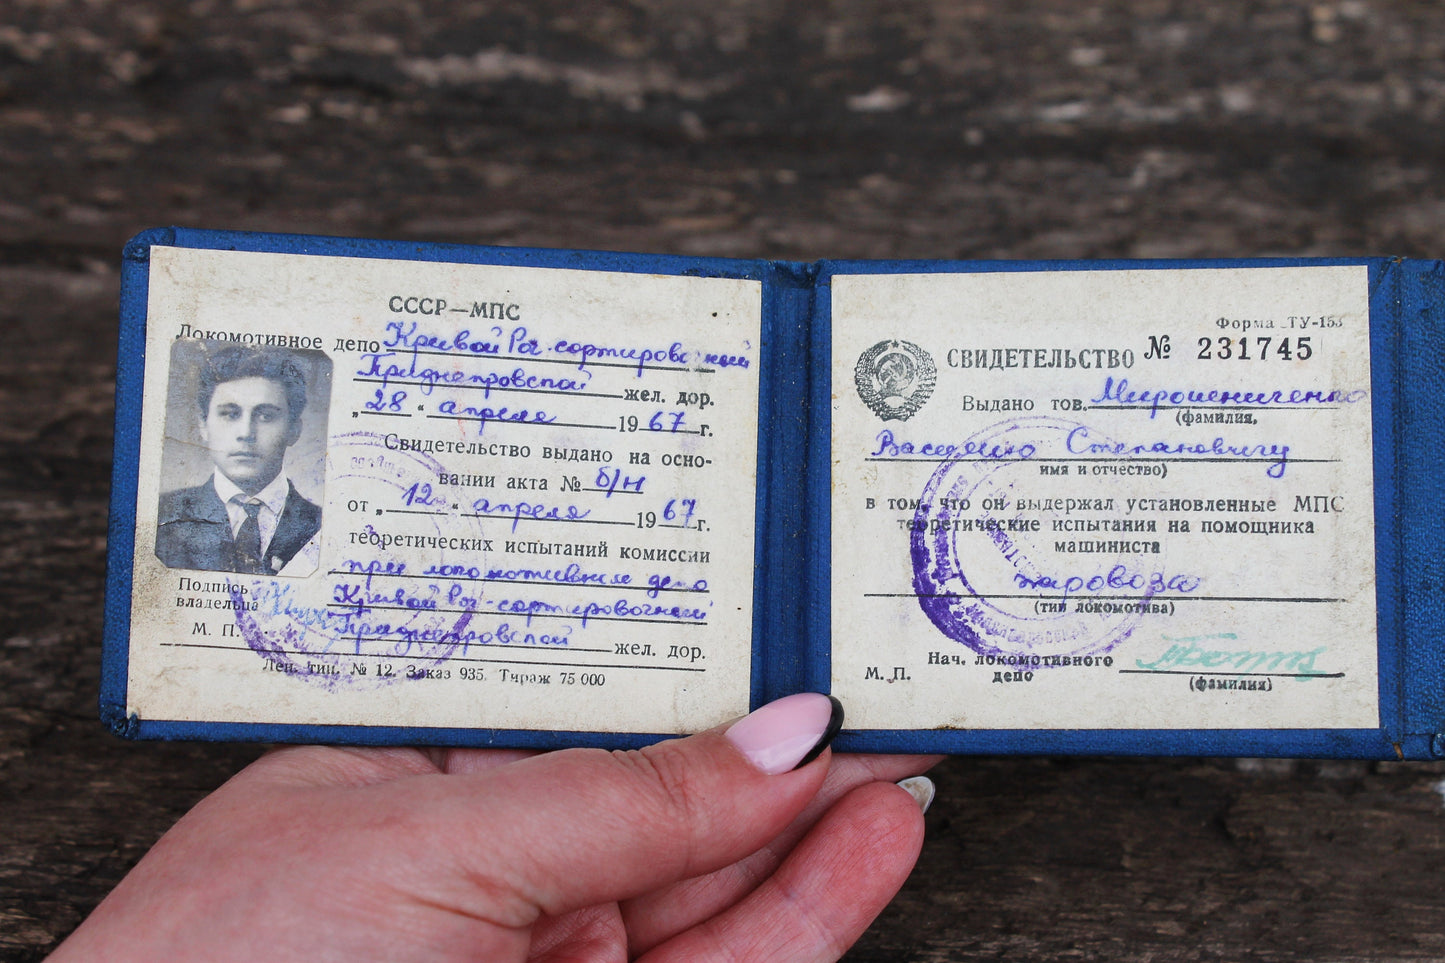 СССР—МПС
Локомотивное депо Кривой Рог-сортировочный
Приднепровской жел. дор.
„28“ апреля 1967 г.
Свидетельство выдано на осно-
вании акта № б/н
от „12“ апреля 1967 г.
теоретических испытаний комиссии
при локомотивном депо
Кривой Рог-сортировочный
Приднепровской жел. дор.
Подпись
владельца
М. П.
Лен. тип. № 12. Заказ 935. Тираж 75 000
Форма ТУ-153
СВИДЕТЕЛЬСТВО № 231745
Выдано тов. Мирошниченко
(фамилия,
Василию Степановичу
имя и отчество)
в том, что он выдержал установленные МПС
теоретические испытания на помощника
машиниста
паровоза
(тип локомотива)
Нач. локомотивного
М. П. депо
(фамилия)